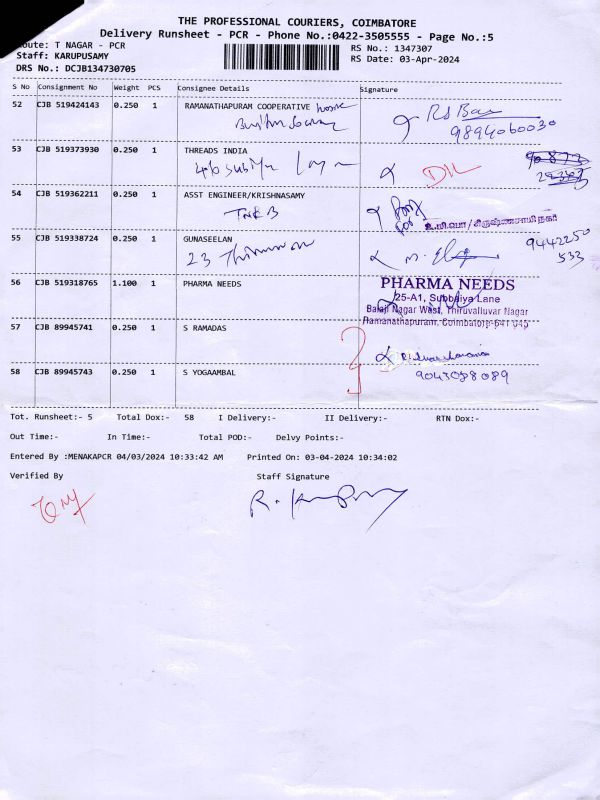 THE PROFESSIONAL COURIERS, COIMBATORE
Delivery Runsheet - PCR - Phone No.:0422-3505555 - Page No.:5
Route: T NAGAR - PCR
RS No.: 1347307
Staff: KARUPUSAMY
RS Date: 03-Apr-2024
DRS No.: DCJB134730705
S No Consignment No Weight PCS Consignee Details Signature
52 CJB 519424143 0.250 1 RAMANATHAPURAM COOPERATIVE
9894060030
53 CJB 519373930 0.250 1 THREADS INDIA
54 CJB 519362211 0.250 1 ASST ENGINEER/KRISHNASAMY
TNEB
55 CJB 519338724 0.250 1 GUNASEELAN
9442250
533
23
56 CJB 519318765 1.100 1 PHARMA NEEDS
PHARMA NEEDS
25-A1, Subbaiya Lane
Balaji Nagar West, Thiruvalluvar Nagar
Ramanathapuram, Coimbatore-641 045
57 CJB 89945741 0.250 1 S RAMADAS
58 CJB 89945743 0.250 1 S YOGAAMBAL
9047088089
Tot. Runsheet:- 5 Total Dox:- 58 I Delivery:- II Delivery:- RTN Dox:-
Out Time:- In Time:- Total POD:- Delvy Points:-
Entered By :MENAKAPCR 04/03/2024 10:33:42 AM Printed On: 03-04-2024 10:34:02
Verified By Staff Signature